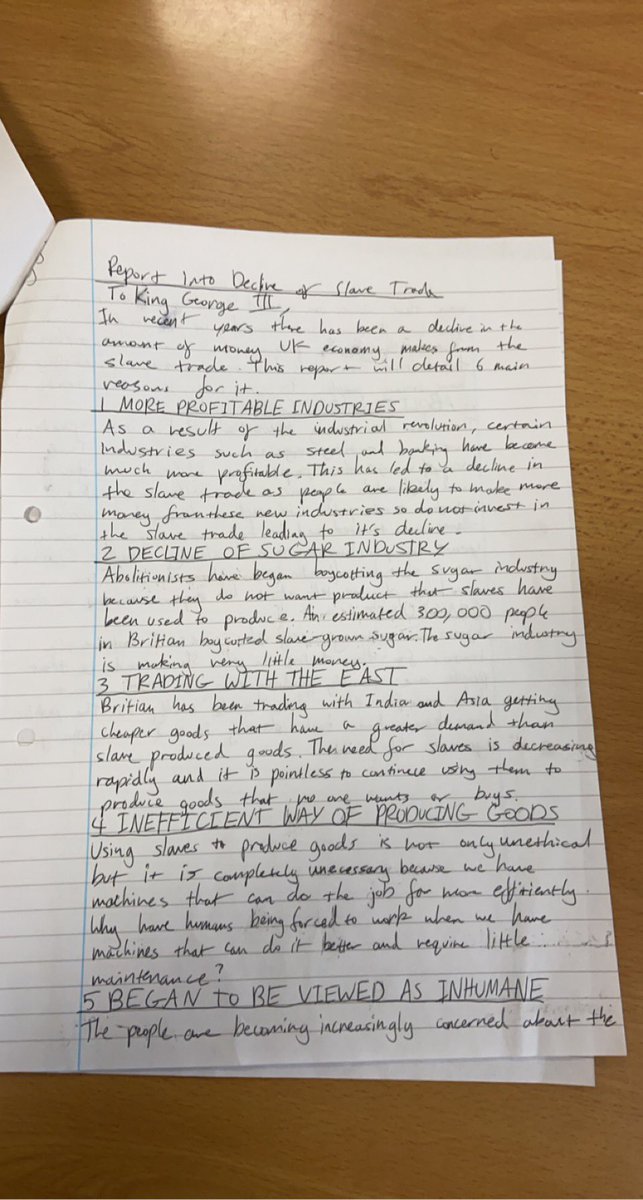 Report Into Decline of Slave Trade
To King George III,
In recent years there has been a decline in the
amount of money UK economy makes from the
slave trade. This report will detail 6 main
reasons for it.
1 MORE PROFITABLE INDUSTRIES
As a result of the industrial revolution, certain
Industries such as steel and banking have become
much more profitable. This has led to a decline in
the slave trade as people are likely to make more
money from these new industries so do not invest in
the slave trade leading to it's decline.
2 DECLINE OF SUGAR INDUSTRY
Abolitionists have began boycotting the sugar industry
because they do not want product that slaves have
been used to produce. An estimated 300,000 people
in Britian boycotted slave-grown sugar. The sugar industry
is making very little money.
3 TRADING WITH THE EAST
Britian has been trading with India and Asia getting
cheaper goods that have a greater demand than
slave produced goods. The need for slaves is decreasing
rapidly and it is pointless to continue using them to
produce goods that no one wants or buys.
4 INEFFICIENT WAY OF PRODUCING GOODS
Using slaves to produce goods is not only unethical
but it is completely unecessary because we have
machines that can do the job far more efficiently.
Why have humans being forced to work when we have
machines that can do it better and require little
maintenance?
5 BEGAN TO BE VIEWED AS INHUMANE
The people are becoming increasingly concerned about the